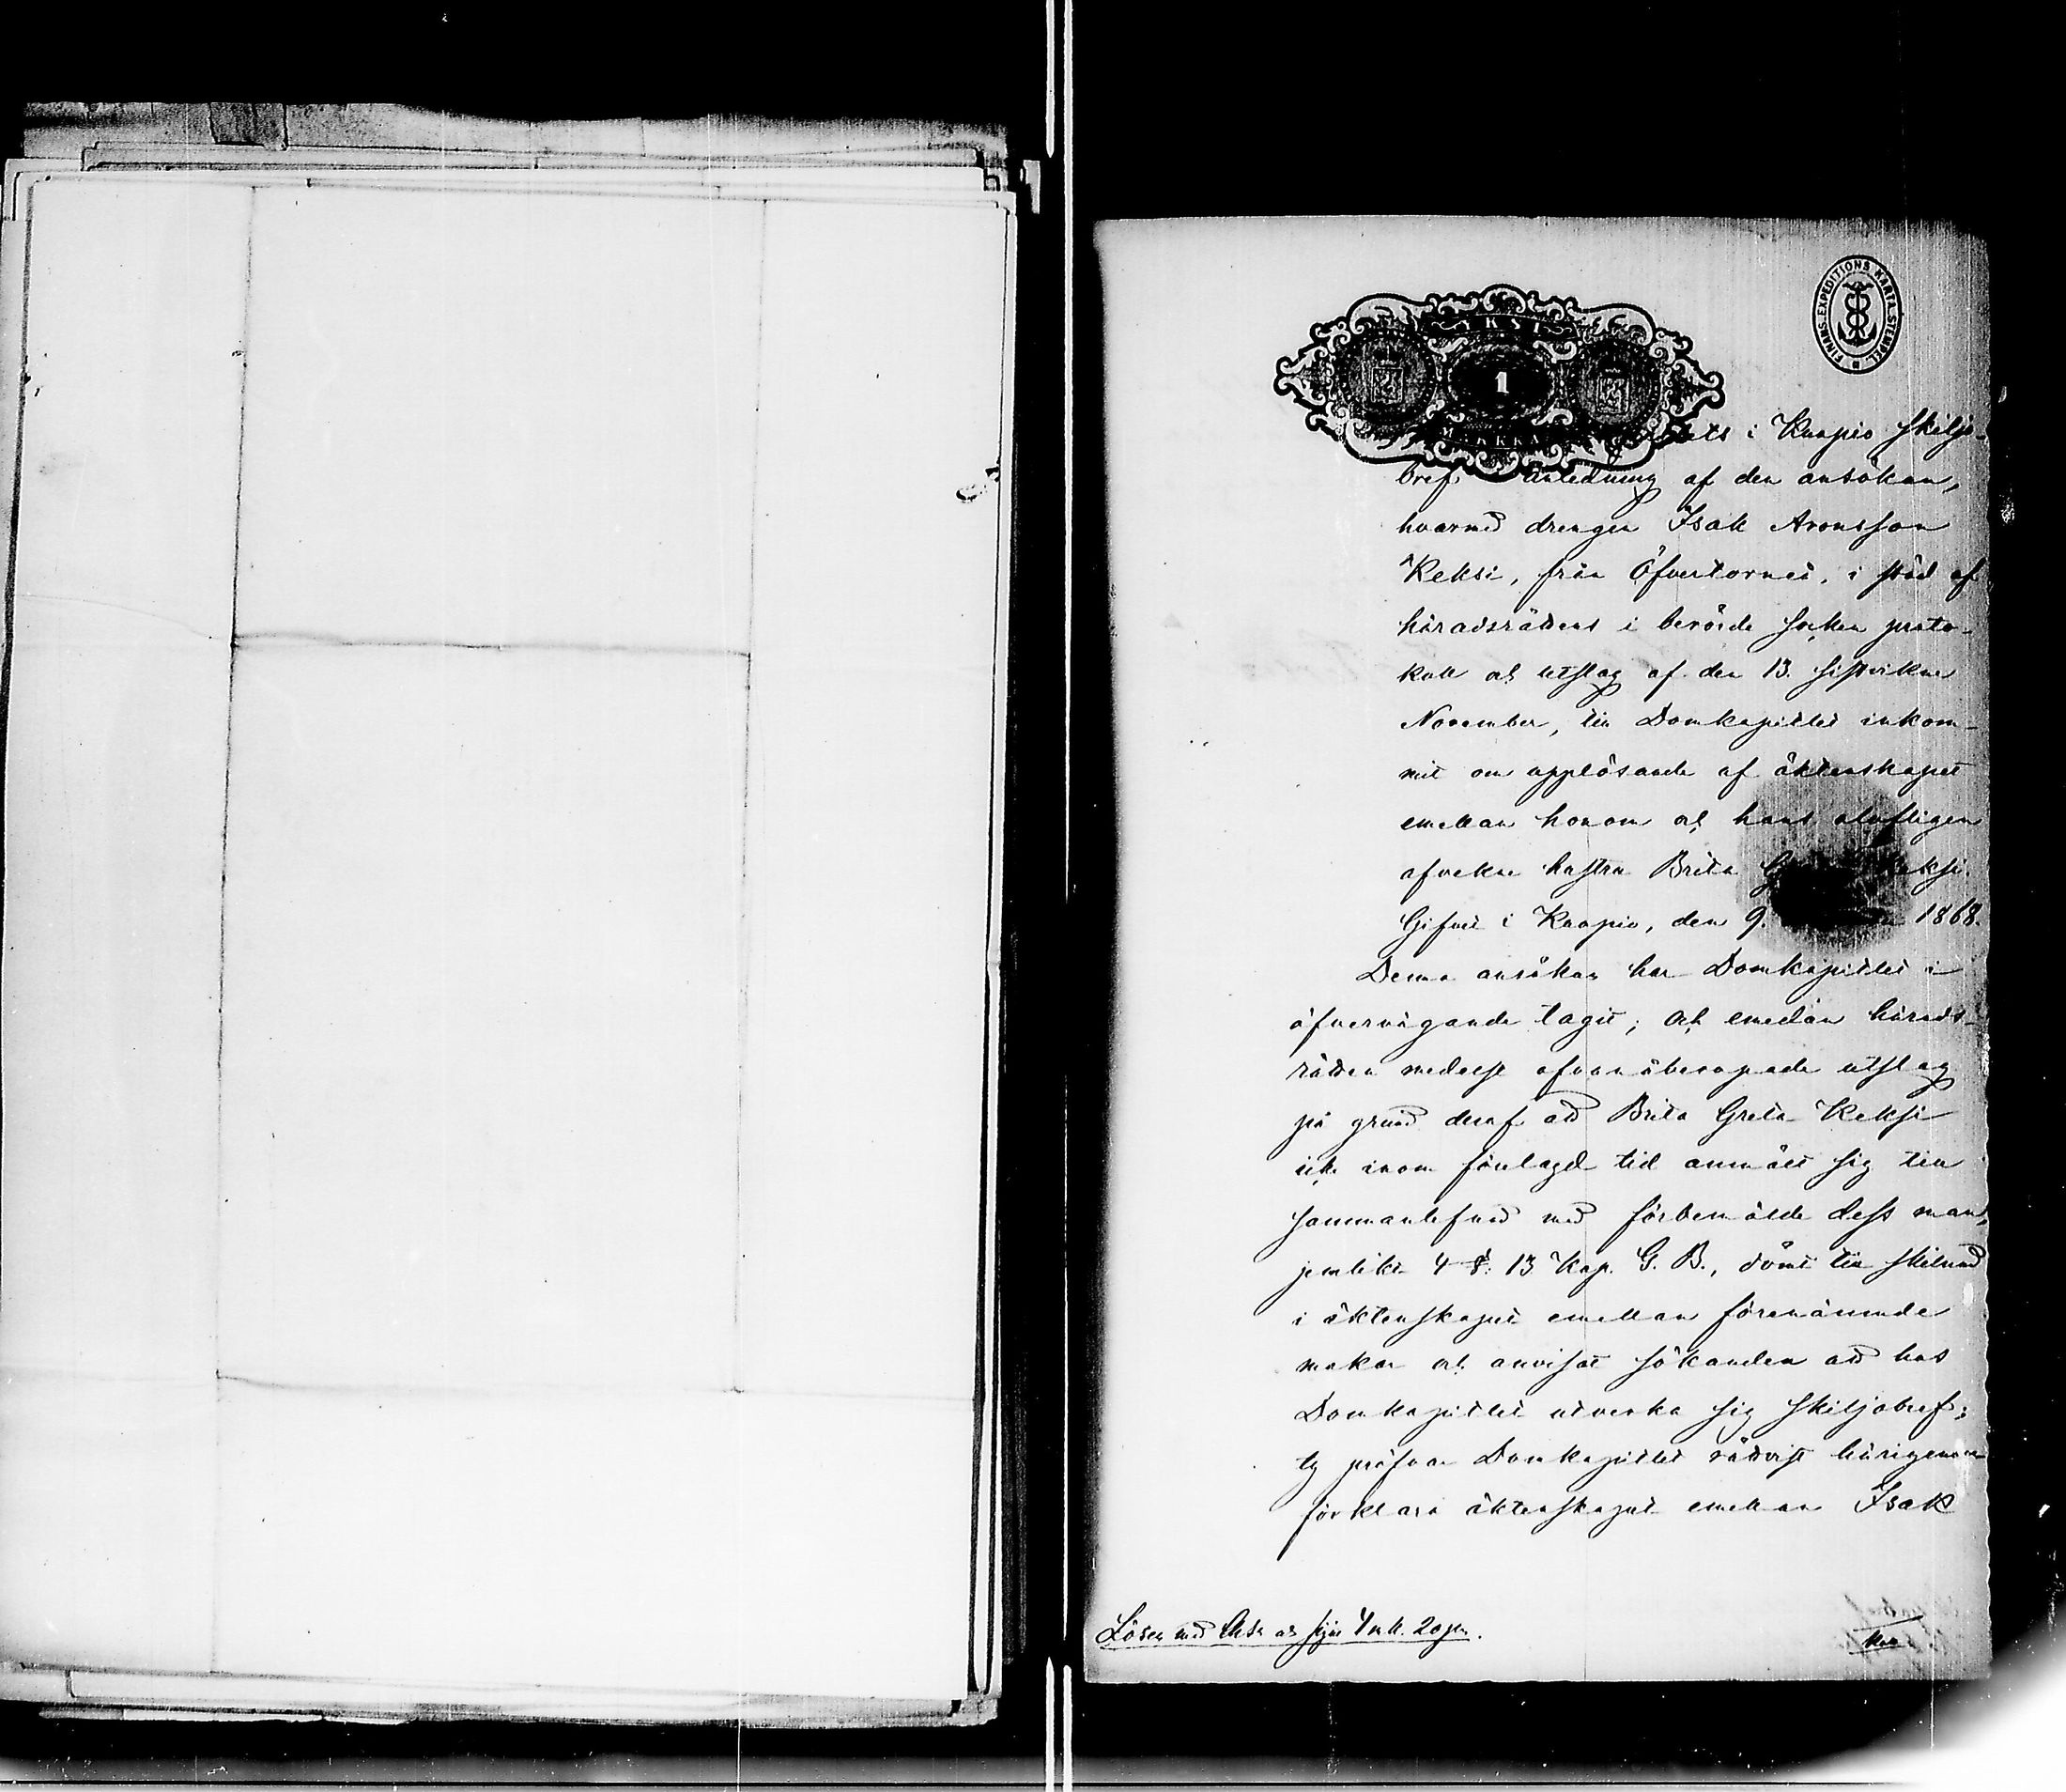 FINANS. EXPEDITIONS KARTA. STEMPEL.
YKSI
1
MARKKA
i Kuopio skiljo-
bref i anledning af den ansökan,
hvarmed drengen Isak Aronsson
Keksi, från Öfvertorneå, i stöd af
häradsrättens i berörde socken proto-
koll och utslag af den 13. sistvikne
November, till Domkapitlet inkom-
mit om upplösande af äktenskapet
emellan honom och hans olofligen
afvekne hustru Brita Keksi.
Gifvet i Kuopio, den 9. 1868.
Denna ansökan har Domkapitlet i
öfvervägande tagit; och emedan härads-
rätten medelst ofvanåberopade utslag
på grund deraf att Brita Greta Keksi
icke inom förelagd tid anmält sig till
sammanlefnad med förbemälde dess man,
jemlikt 4 §. 13 Kap. G. B., dömt till skilnad
i äktenskapet emellan förenämnde
makar och anvisat sökanden att hos
Domkapitlet utverka sig skiljobref;
ty pröfvar Domkapitlet rättvist härigenom
förklara äktenskapet emellan Isak
Lösen med Charta och 4 mk. 20 pn.